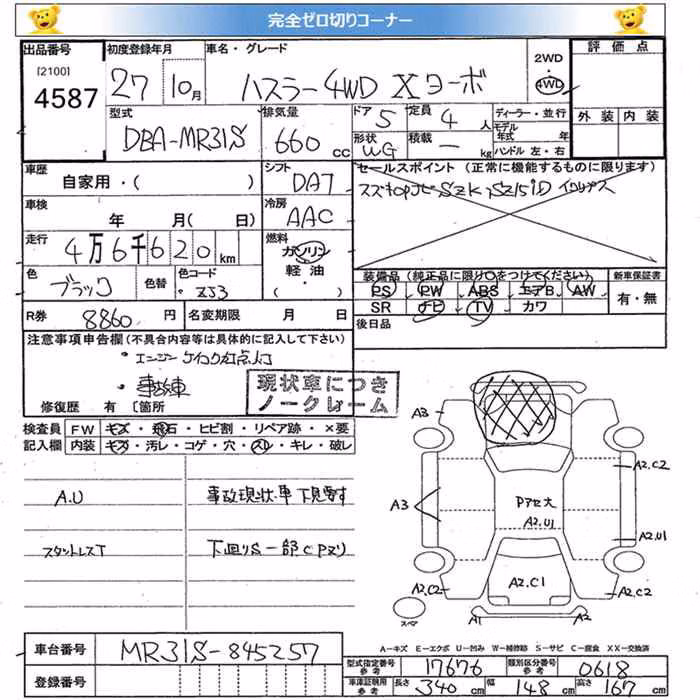 完全ゼロ切りコーナー
出品番号
[2100]
4587
初度登録年月
27 10月
車名・グレード
ハスラー 4WD X ターボ
2WD
4WD
評価点
外装 内装
型式
DBA-MR31S
排気量
660 cc
ドア 5
定員 4 人
形状 WG
積載 ― kg
ディーラー・並行
モデル年式 年
ハンドル 左・右
車歴
自家用・( )
シフト
DA7
セールスポイント (正常に機能するものに限ります)
車検
年 月( 日)
冷房
AAC
走行
4万6千620 km
燃料
ガソリン
軽油
・( )
色
ブラック
色替
色コード
ZJ3
装備品 (純正品に限り○をつけてください)
PS PW ABS エアB AW
SR ナビ TV カワ
新車保証書
有・無
R券 8860 円
名変期限 月 日
後日品
注意事項申告欄 (不具合内容等は具体的に記入して下さい)
・エンジンチェックランプ点灯
・事故車
修復歴 有 〔箇所
現状車につき
ノークレーム
検査員
記入欄
FW キズ・飛石・ヒビ割・リペア跡・×要
内装 キズ・汚レ・コゲ・穴・スレ・キレ・破レ
A.U
事故現状車 下見要す
スタットレスT
下回りS 一部CPヌリ
A3
A2.C2
A3
Pアセ大
A2.U1
A2.U1
A2.C2
A2.C1
A2.C2
スペア
A1
A2
A-キズ E-エクボ U-凹み W-補修跡 S-サビ C-腐食 XX-交換済
車台番号
MR31S-845257
登録番号
型式指定番号
参考
17676
類別区分番号
参考
0618
車庫証明用
参考
長さ 340 cm
幅 148 cm
高さ 167 cm